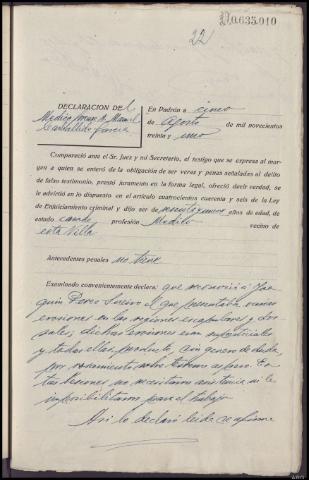 D0.635.010
22
DECLARACION DEl
Medico Forense D. Manuel
Carballido Garcia
En Padrón a cinco
de Agosto de mil novecientos
treinta y uno
Compareció ante el Sr. Juez y mi Secretario, el testigo que se expresa al mar-
gen a quien se enteró de la obligación de ser veraz y penas señaladas al delito
de falso testimonio, prestó juramento en la forma legal, ofreció decir verdad, se
le advirtió lo dispuesto en el artículo cuatrocientos cuarenta y seis de la Ley
de Enjuiciamiento criminal y dijo ser de años de edad, de
estado casado profesión Médico vecino de
esta Villa
Antecedentes penales no tiene
Examinado convenientemente declara: que reconoció a Joa-
quín Perez el que presentaba varias
erosiones en las regiones escapulares y dor-
sales; dichas erosiones son superficiales
y todas ellas, producto, sin genero de duda,
por rozamiento sobre áspero. Es-
tas lesiones no necesitaron asistencia ni le
imposibilitaron para el trabajo
Así lo declaró leída se afirma